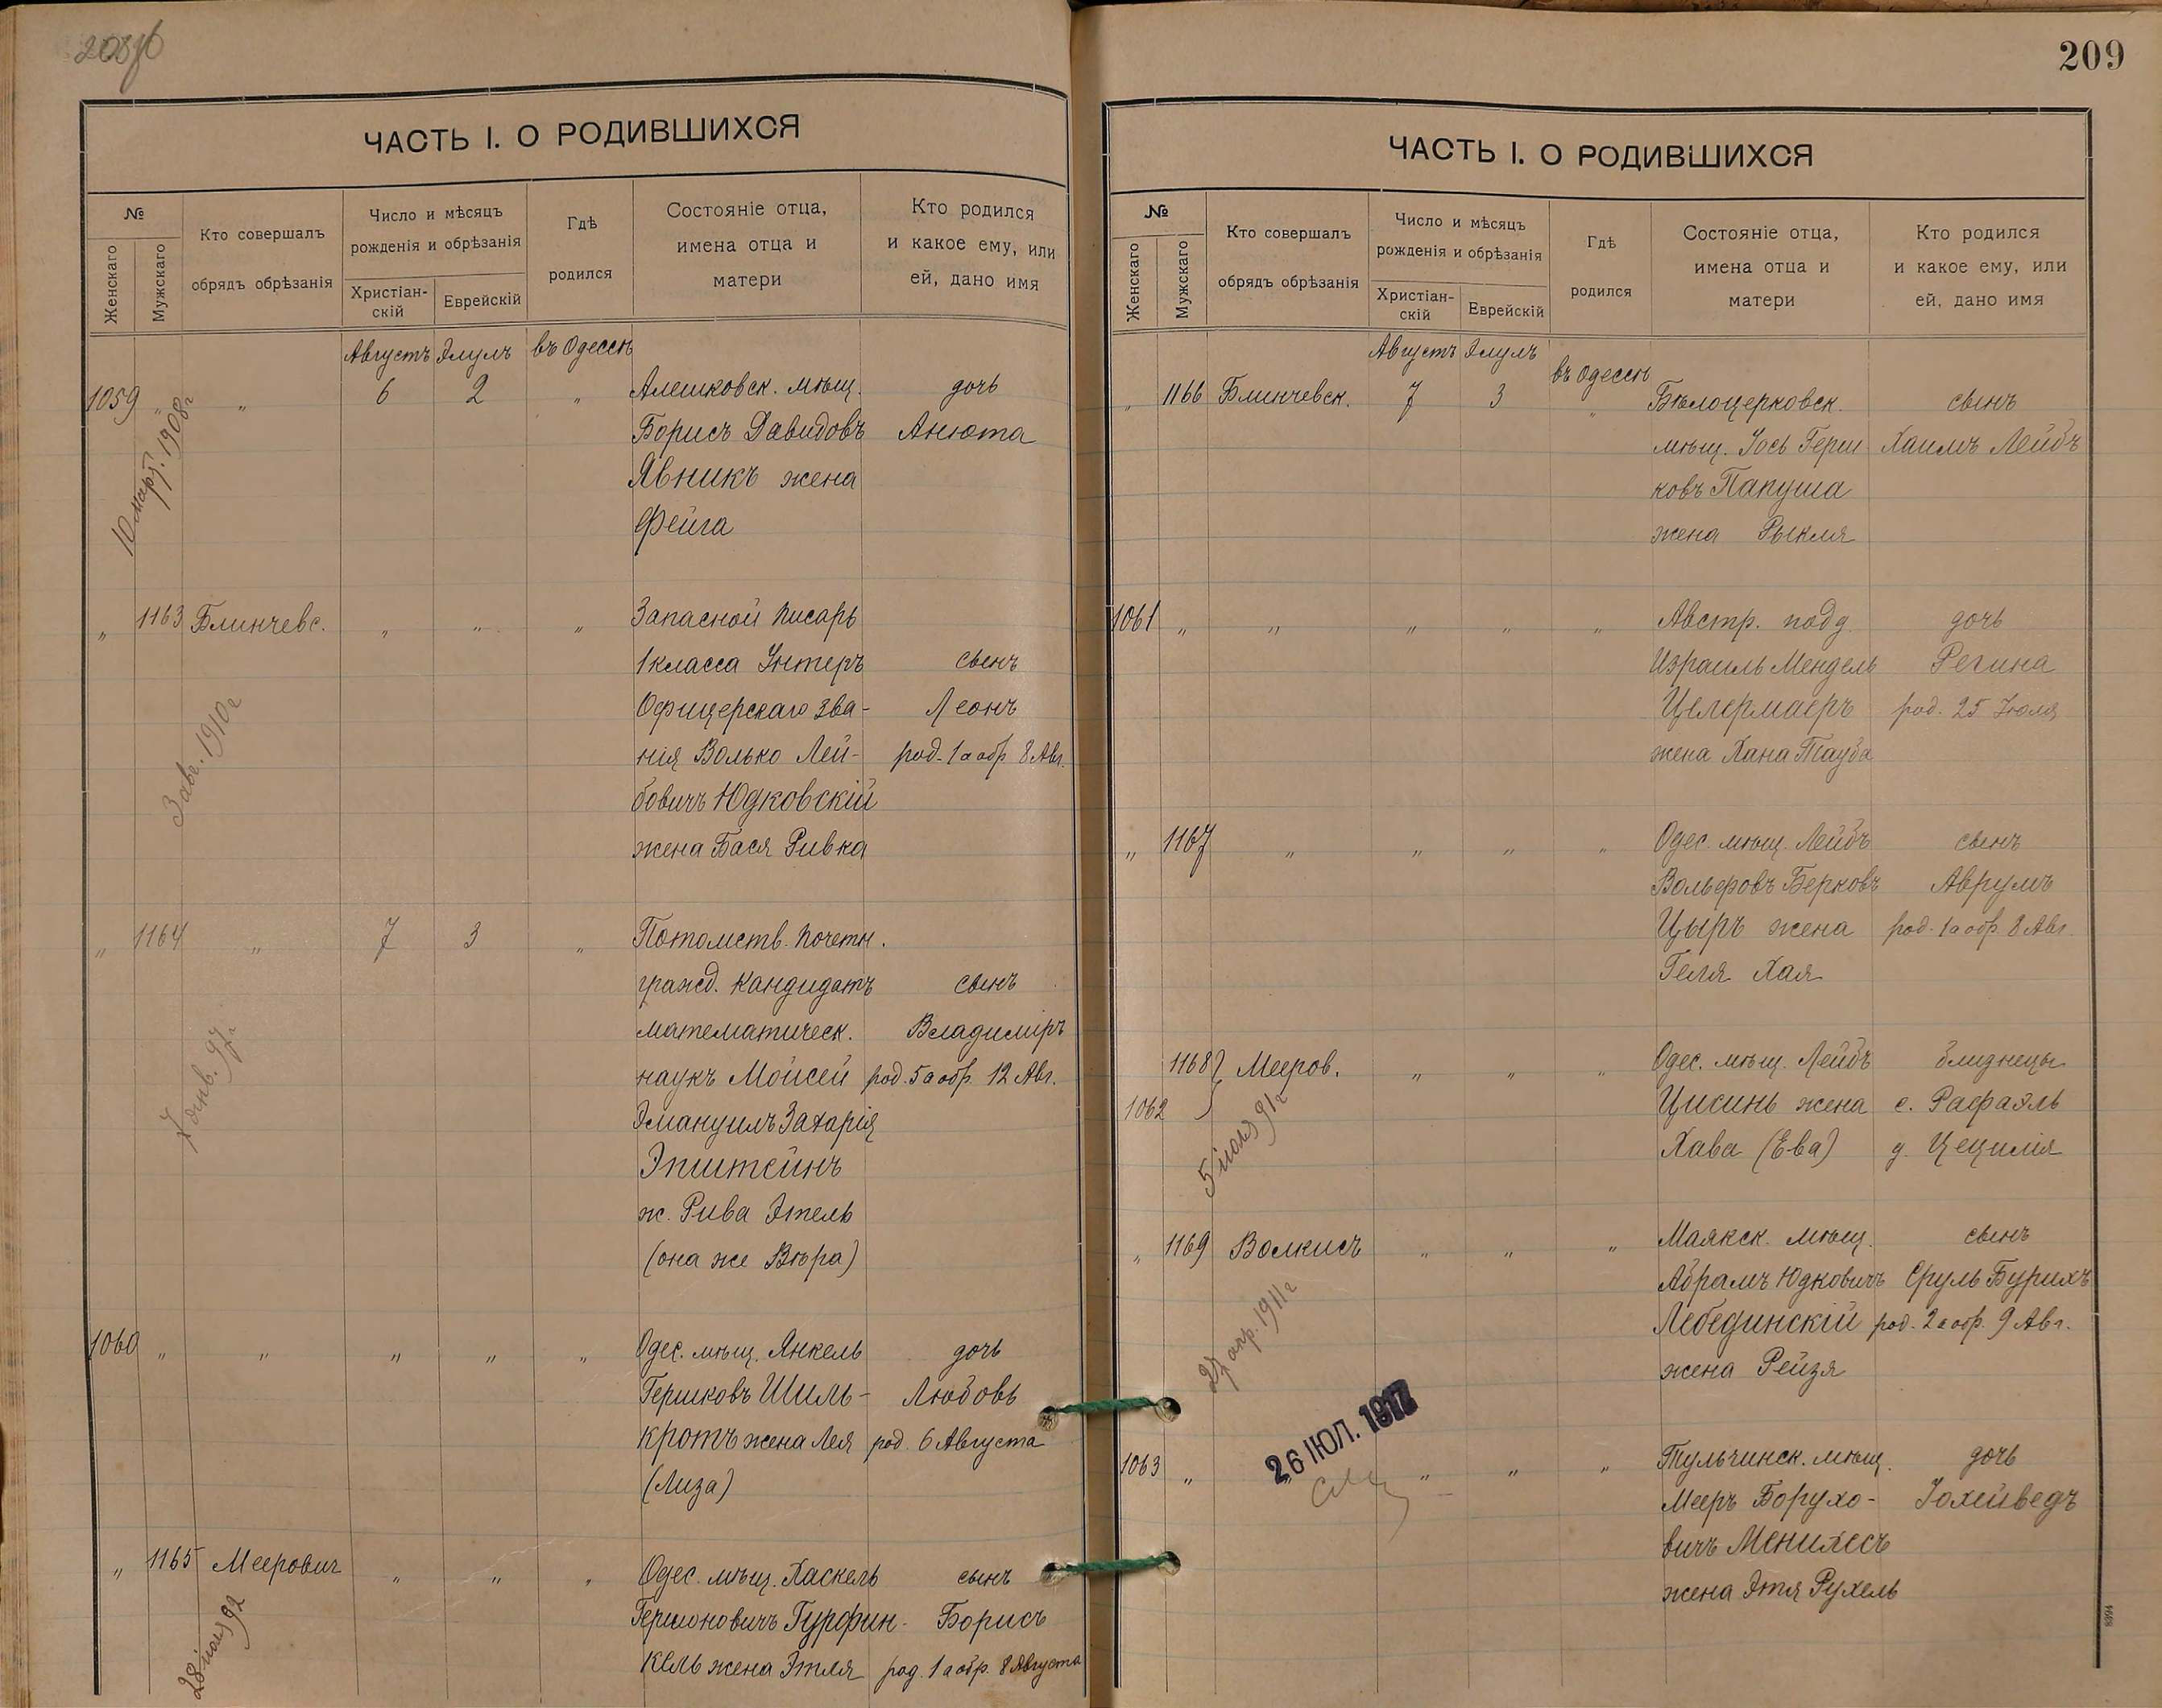 208об
ЧАСТЬ I. О РОДИВШИХСЯ
№
Женскаго
Мужскаго
Кто совершалъ
обрядъ обрѣзанія
Число и мѣсяцъ
рожденія и обрѣзанія
Христіан-
скій
Еврейскій
Гдѣ
родился
Состояніе отца,
имена отца и
матери
Кто родился
и какое ему, или
ей, дано имя
Августъ Элулъ въ Одессѣ
1059 „ „ 6 2 „ Алешковск. мѣщ. дочь
Борисъ Давидовъ Анюта
Явникъ жена
Фейга
10 март. 1908 г
„ 1163 Блинчевс. „ „ „ Запасной писарь
1 класса Унтеръ сынъ
Офицерскаго зва- Леонъ
нія Волько Лей- род. 1 а обр 8 Авг.
бовичъ Юдковскій
жена Бася Ривка
3 авг. 1910 г
„ 1164 „ 7 3 „ Потомств. почетн.
гражд. кандидатъ сынъ
математическ. Владиміръ
наукъ Мойсей род. 5 а обр. 12 Авг.
Эмануилъ Захарія
Эпштейнъ
ж. Рива Этель
(она же Вѣра)
7 янв. 97 г
1060 „ „ „ „ „ Одес. мѣщ. Янкель дочь
Гершковъ Шиль- Любовь
кротъ жена Лея род. 6 Августа
(Лиза)
„ 1165 Меерович „ „ „ Одес. мѣщ. Хаскель сынъ
Гершоновичъ Гурфин- Борисъ
кель жена Этля род. 1 а обр. 8 Августа
28 іюля 92
209
ЧАСТЬ I. О РОДИВШИХСЯ
№
Женскаго
Мужскаго
Кто совершалъ
обрядъ обрѣзанія
Число и мѣсяцъ
рожденія и обрѣзанія
Христіан-
скій
Еврейскій
Гдѣ
родился
Состояніе отца,
имена отца и
матери
Кто родился
и какое ему, или
ей, дано имя
Августъ Элулъ въ Одессѣ
„ 1166 Блинчевск. 7 3 „ Бѣлоцерковск. сынъ
мѣщ. Іось Герш Хаимъ Лейбъ
ковъ Папуша
жена Рыкля
1061 „ „ „ „ „ Австр. подд. дочь
Израиль Мендель Регина
Целермаеръ род. 25 Іюля
жена Хана Тауба
„ 1167 „ „ „ „ Одес. мѣщ. Лейбъ сынъ
Вольфовъ Берковъ Аврумъ
Цыръ жена род. 1 а обр. 8 Авг.
Геля Хая
1168 Мееров. „ „ „ Одес. мѣщ. Лейбъ близнецы
1062 Цисинь жена с. Рафаэль
Хава (Ева) д. Цецилія
5 іюля 91 г
„ 1169 Волкисъ „ „ „ Маякск. мѣщ. сынъ
Абрамъ Юдковичъ Сруль Бурихъ
Лебединскій род. 2 а обр. 9 Авг.
жена Рейзя
27 апр. 1911 г
26 ІЮЛ. 1917
1063 „ „ „ „ Тульчинск. мѣщ. дочь
Мееръ Борухо- Іохейведъ
вичъ Менилесъ
жена Этя Рухель